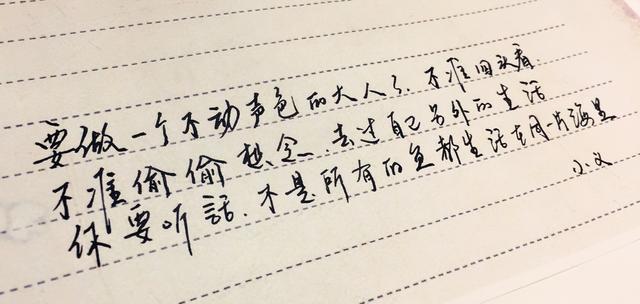 要做一个不动声色的大人了.不准回头看
不准偷偷想念 去过自己另外的生活
你要听話.不是所有的鱼都生活在同一片海里